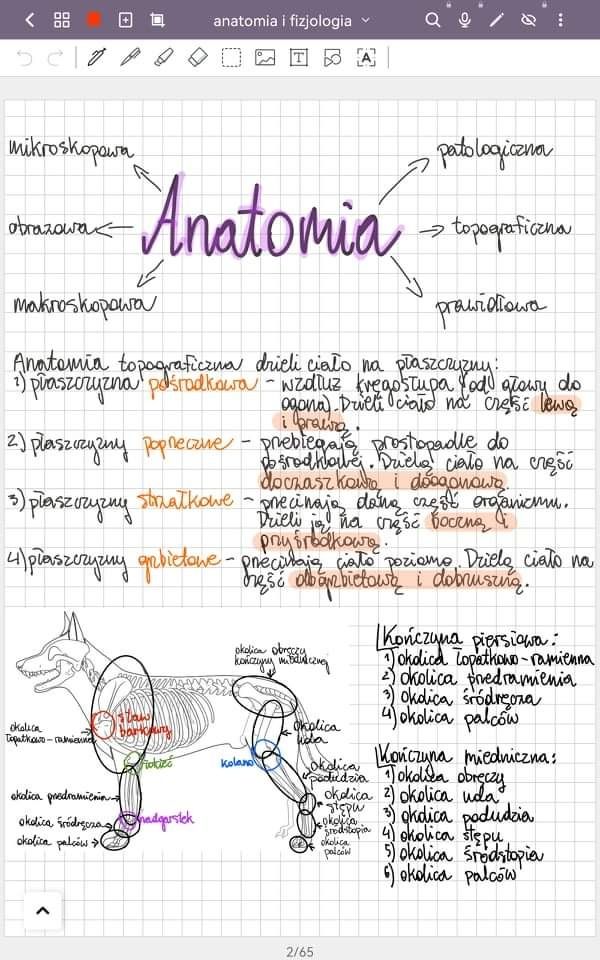 anatomia i fizjologia
mikroskopowa
patologiczna
Anatomia
obrazowa
topograficzna
makroskopowa
prawidłowa
Anatomia topograficzna dzieli ciało na płaszczyzny:
1) płaszczyzna pośrodkowa - wzdłuż kręgosłupa (od głowy do
ogona). Dzieli ciało na część lewą
i prawą.
2) płaszczyzny poprzeczne - przebiegają prostopadle do
pośrodkowej. Dzielą ciało na część
doczaszkową i doogonową.
3) płaszczyzny strzałkowe - przecinają daną część organizmu.
Dzieli ją na część boczną i
przyśrodkową.
4) płaszczyzny grzbietowe - przecinają ciało poziomo. Dzielą ciało na
część dogrzbietową i dobrzuszną.
okolica obręczy
kończyny miednicznej
staw
barkowy
okolica
łopatkowo-ramienna
łokieć
okolica przedramienia
nadgarstek
okolica śródręcza
okolica palców
okolica
uda
kolano
okolica
podudzia
okolica
stępu
okolica
śródstopia
okolica
palców
Kończyna piersiowa:
1) okolica łopatkowo-ramienna
2) okolica przedramienia
3) okolica śródręcza
4) okolica palców
Kończyna miedniczna:
1) okolica obręczy
2) okolica uda
3) okolica podudzia
4) okolica stępu
5) okolica śródstopia
6) okolica palców
2/65